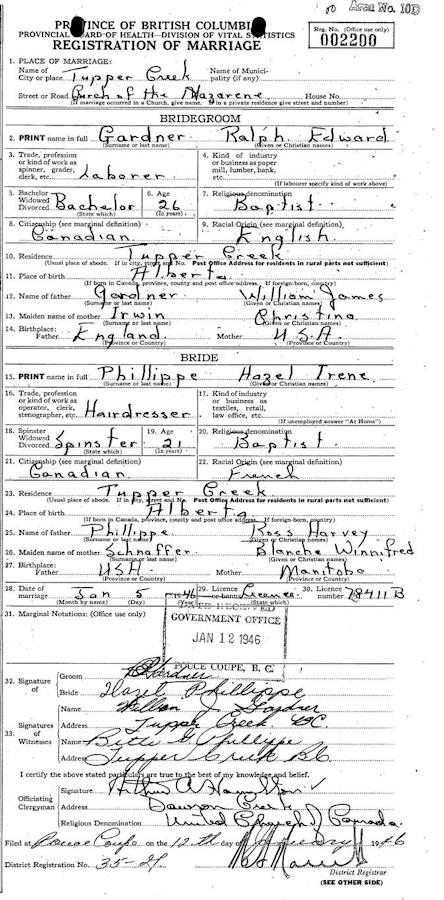 50 Area No. 10D
PROVINCE OF BRITISH COLUMBIA
PROVINCIAL BOARD OF HEALTH—DIVISION OF VITAL STATISTICS
REGISTRATION OF MARRIAGE
Reg. No. (Office use only)
002200
1. PLACE OF MARRIAGE:
Name of City or place Tupper Creek Name of Municipality (if any)
Street or Road Curch of the Nazarene House No.
(If marriage occurred in a Church, give name. If in a private residence give street and number)
BRIDEGROOM
2. PRINT name in full Gardner Ralph Edward
(Surname or last name) (Given or Christian names)
3. Trade, profession or kind of work as spinner, grader, clerk, etc. Laborer
4. Kind of industry or business as paper mill, lumber, bank, etc.
(If labourer specify kind of work above)
5. Bachelor Widowed Divorced Bachelor (State which)
6. Age 26 (In years)
7. Religious denomination Baptist
8. Citizenship (see marginal definition) Canadian
9. Racial Origin (See marginal definition) English
10. Residence Tupper Creek
(Usual place of abode. If in city, street and No. Post Office Address for residents in rural parts not sufficient)
11. Place of birth Alberta
(If born in Canada, province, county and post office address. If foreign-born, country)
12. Name of father Gardner William James
(Surname or last name) (Given or Christian names)
13. Maiden name of mother Irwin Christina
(Surname or last name) (Given or Christian names)
14. Birthplace: Father England Mother U.S.A.
(Province or Country) (Province or Country)
BRIDE
15. PRINT name in full Phillippe Hazel Irene
(Surname or last name) (Given or Christian names)
16. Trade, profession or kind of work as operator, clerk, stenographer, etc. Hairdresser
17. Kind of industry or business as textiles, retail, law office, etc.
(If unemployed answer "At Home")
18. Spinster Widowed Divorced Spinster (State which)
19. Age 21 (In years)
20. Religious denomination Baptist
21. Citizenship (see marginal definition) Canadian
22. Racial Origin (See marginal definition) French
23. Residence Tupper Creek
(Usual place of abode. If in city, street and No. Post Office Address for residents in rural parts not sufficient)
24. Place of birth Alberta
(If born in Canada, province, county and post office address. If foreign-born, country)
25. Name of father Phillippe Ross Harvey
(Surname or last name) (Given or Christian names)
26. Maiden name of mother Schnaffer Blanche Winnifred
(Surname or last name) (Given or Christian names)
27. Birthplace: Father USA Mother Manitoba
(Province or Country) (Province or Country)
28. Date of marriage Jan 5 1946
(Month by name) (Day) (Year)
29. Licence or banns Licence (State which)
30. Licence number 78411B
31. Marginal Notations: (Office use only)
RECEIVED
GOVERNMENT OFFICE
JAN 12 1946
POUCE COUPE, B. C.
32. Signature of
Groom Gardner
Bride Hazel Phillippe
33. Signatures of Witnesses
Name William J. Gardner
Address Tupper Creek BC.
Name Phillippe
Address Tupper Creek B.C.
I certify the above stated particulars are true to the best of my knowledge and belief.
Officiating Clergyman
Signature Arthur A. Hamilton
Address Dawson Creek
Religious Denomination United Church of Canada.
Filed at Pouce Coupe on the 12th day of January 1946
District Registration No. 35-21
District Registrar
(SEE OTHER SIDE)